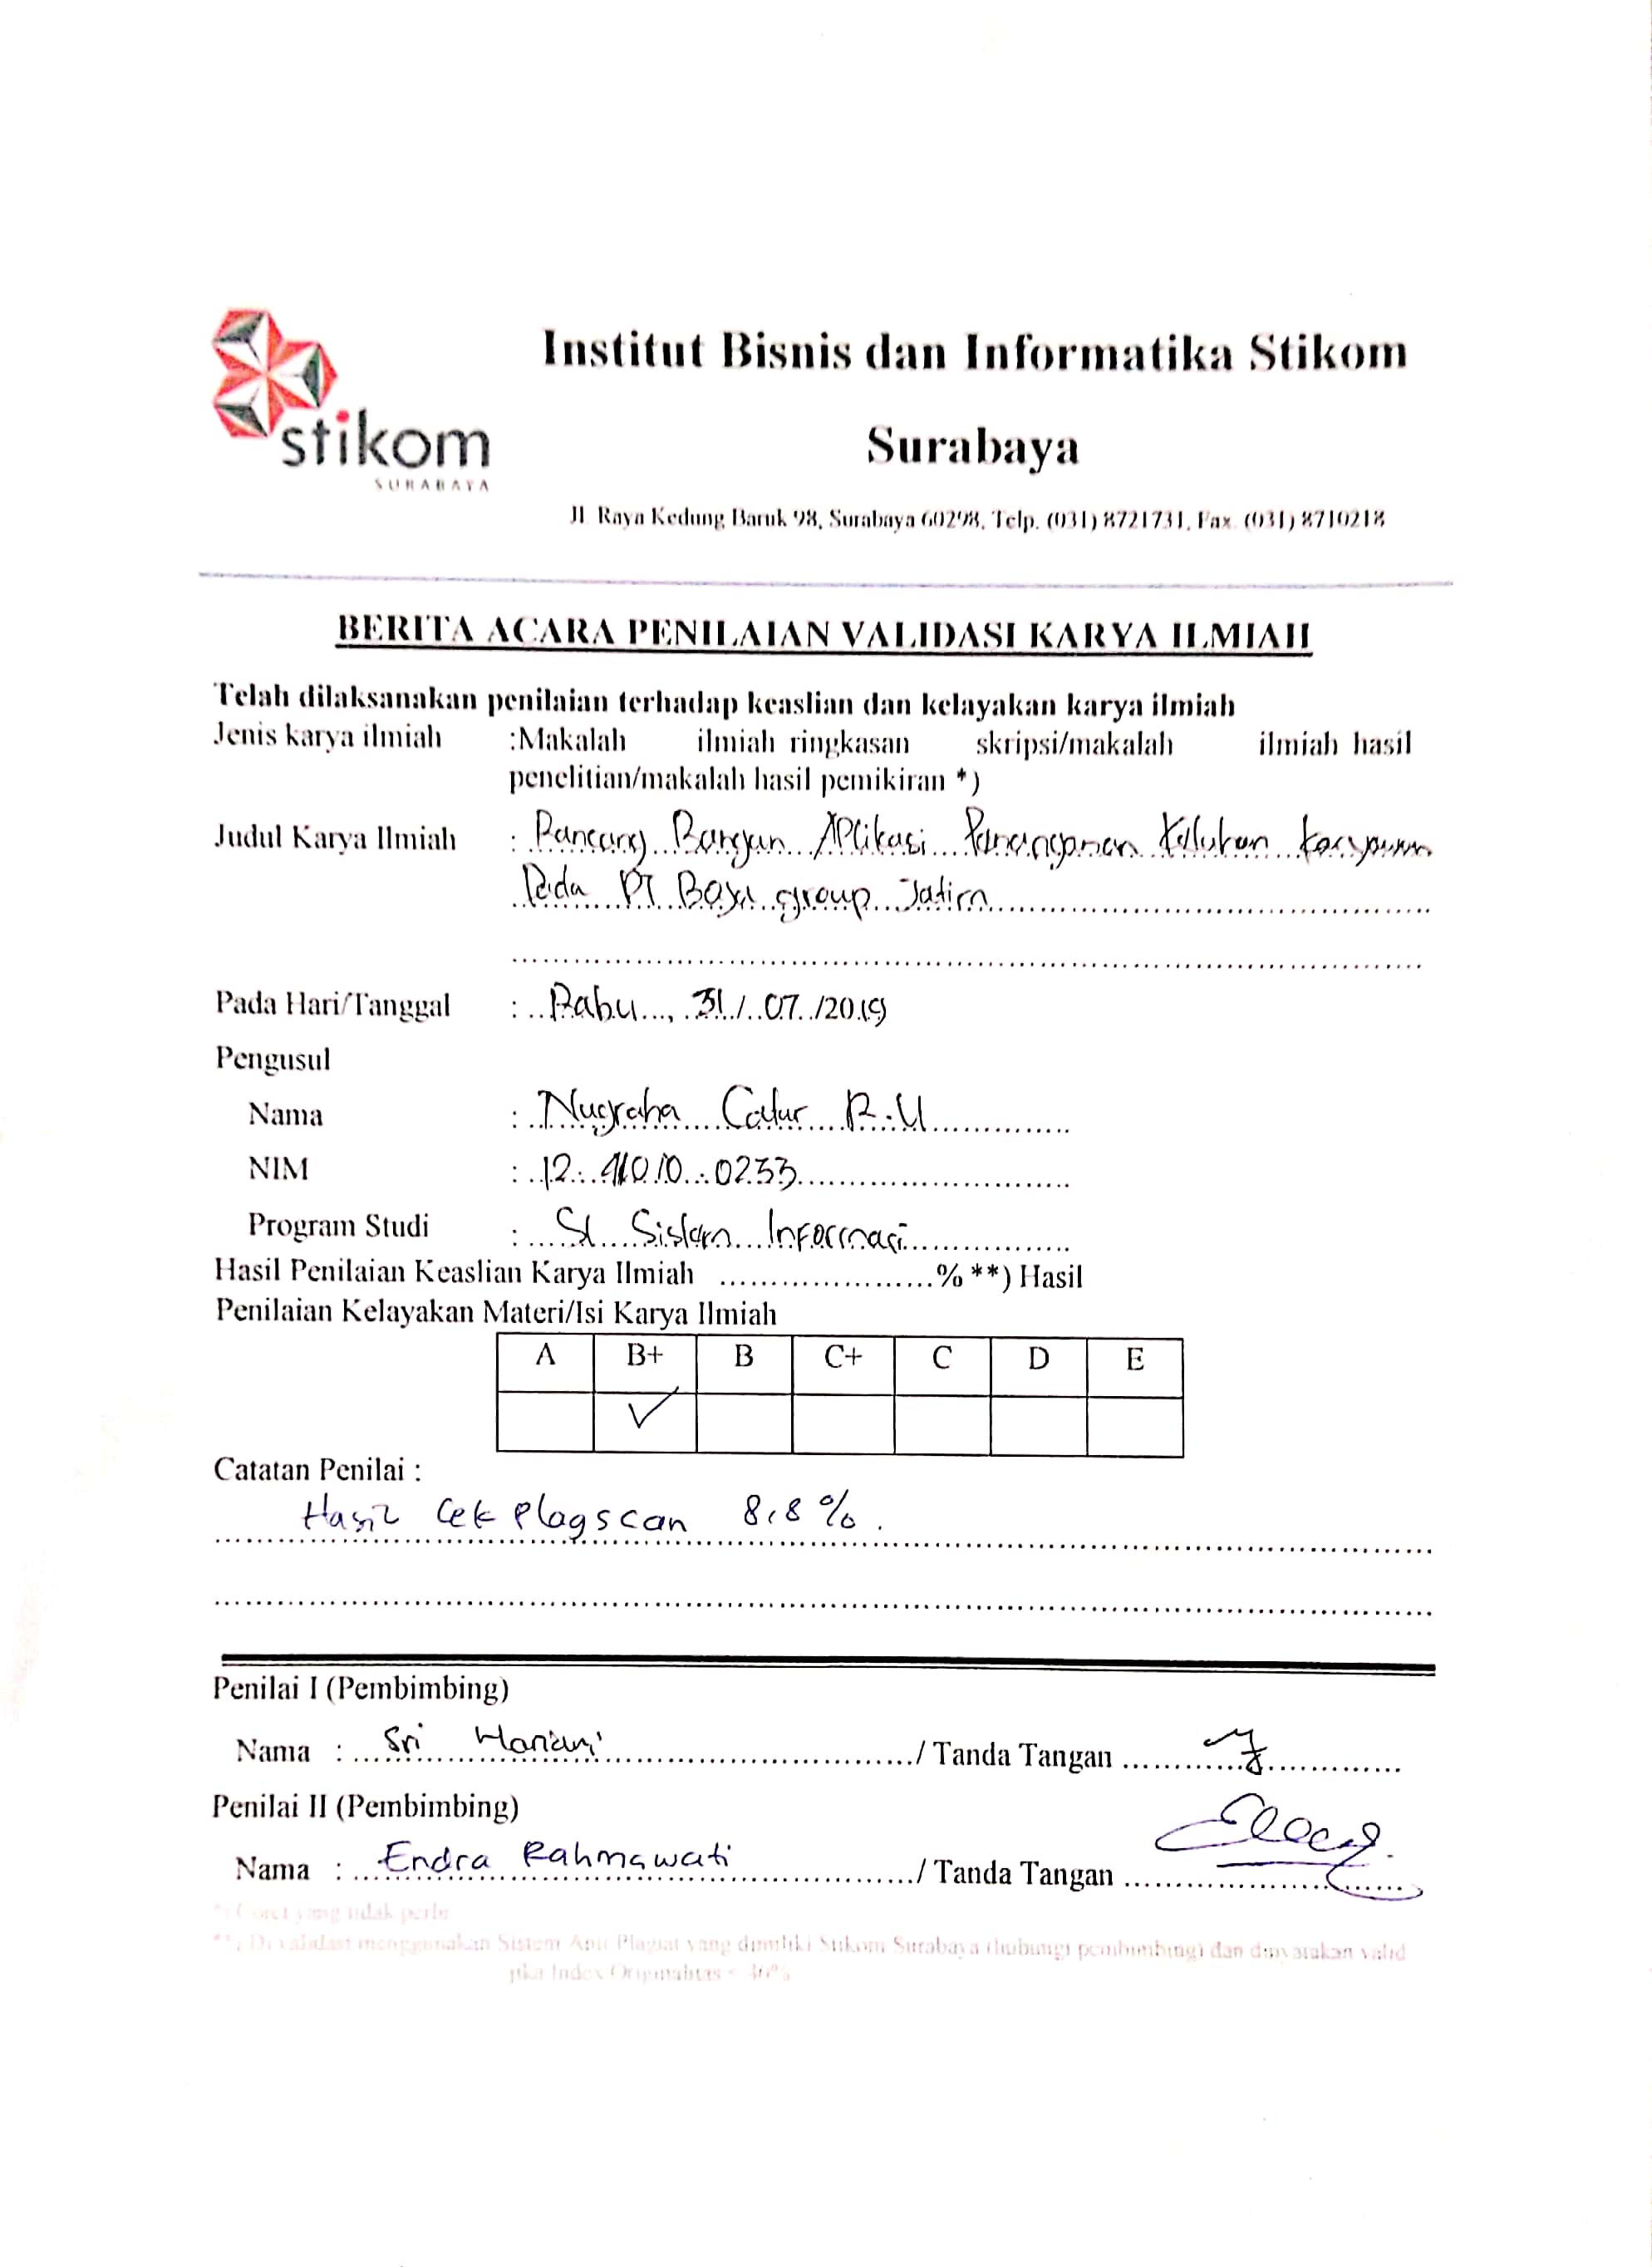 stikom
SURABAYA
Institut Bisnis dan Informatika Stikom
Surabaya
Jl. Raya Kedung Baruk 98, Surabaya 60298, Telp. (031) 8721731, Fax. (031) 8710218
BERITA ACARA PENILAIAN VALIDASI KARYA ILMIAH
Telah dilaksanakan penilaian terhadap keaslian dan kelayakan karya ilmiah
Jenis karya ilmiah :Makalah ilmiah ringkasan skripsi/makalah ilmiah hasil
penelitian/makalah hasil pemikiran *)
Judul Karya Ilmiah : Rancang Bangun Aplikasi Penanganan Keluhan Karyawan
Pada PT Baya group Jatim
Pada Hari/Tanggal : Rabu, 31/07/2019
Pengusul
Nama : Nugraha Catur R.U
NIM : 12.41010.0233
Program Studi : S1 Sistem Informasi
Hasil Penilaian Keaslian Karya Ilmiah .....................% **) Hasil
Penilaian Kelayakan Materi/Isi Karya Ilmiah
A B+ B C+ C D E
✓
Catatan Penilai :
Hasil Cek Plagscan 8,8%.
Penilai I (Pembimbing)
Nama : Sri Hariani / Tanda Tangan
Penilai II (Pembimbing)
Nama : Endra Rahmawati / Tanda Tangan
*) Coret yang tidak perlu
**) Di validasi menggunakan Sistem Anti Plagiat yang dimiliki Stikom Surabaya (hubungi pembimbing) dan dinyatakan valid
jika Index Originalitas < 40%